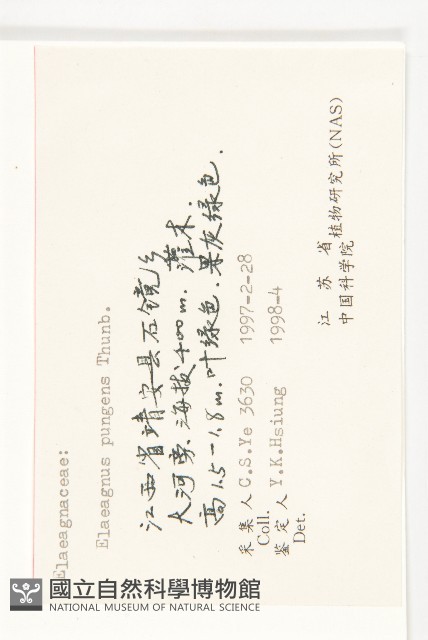 Elaeagnaceae:
Elaeagnus pungens Thunb.
江西省靖安县石镜乡
大河旁、海拔400m. 灌木.
高1.5-1.8m. 叶绿色. 果灰绿色.
采集人 C.S.Ye 3630 1997-2-28
Coll.
鉴定人 Y.K.Hsiung 1998-4
Det.
江苏省植物研究所(NAS)
中国科学院
國立自然科學博物館
NATIONAL MUSEUM OF NATURAL SCIENCE